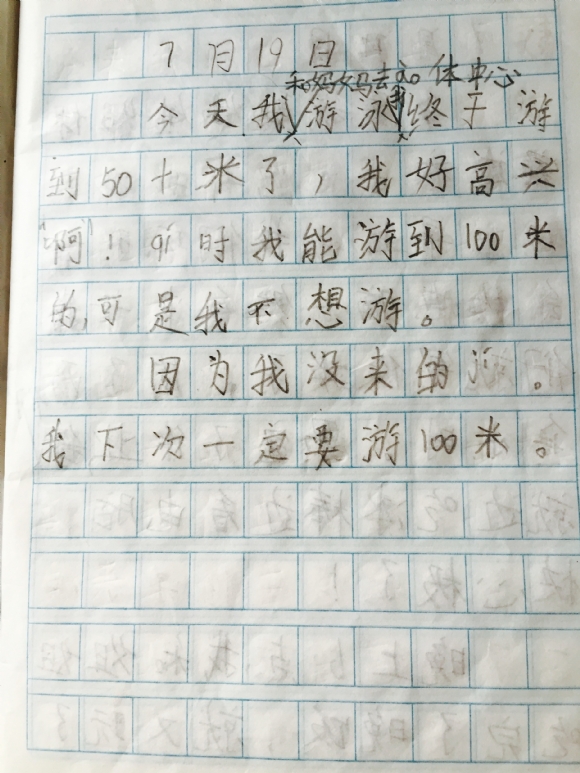 7月19日
和妈妈去ao体中心
今天我游泳我终于游
到50十米了，我好高兴
“啊”！qi时我能游到100米
的,可是我不想游。
因为我没来的。
我下次一定要游100米。